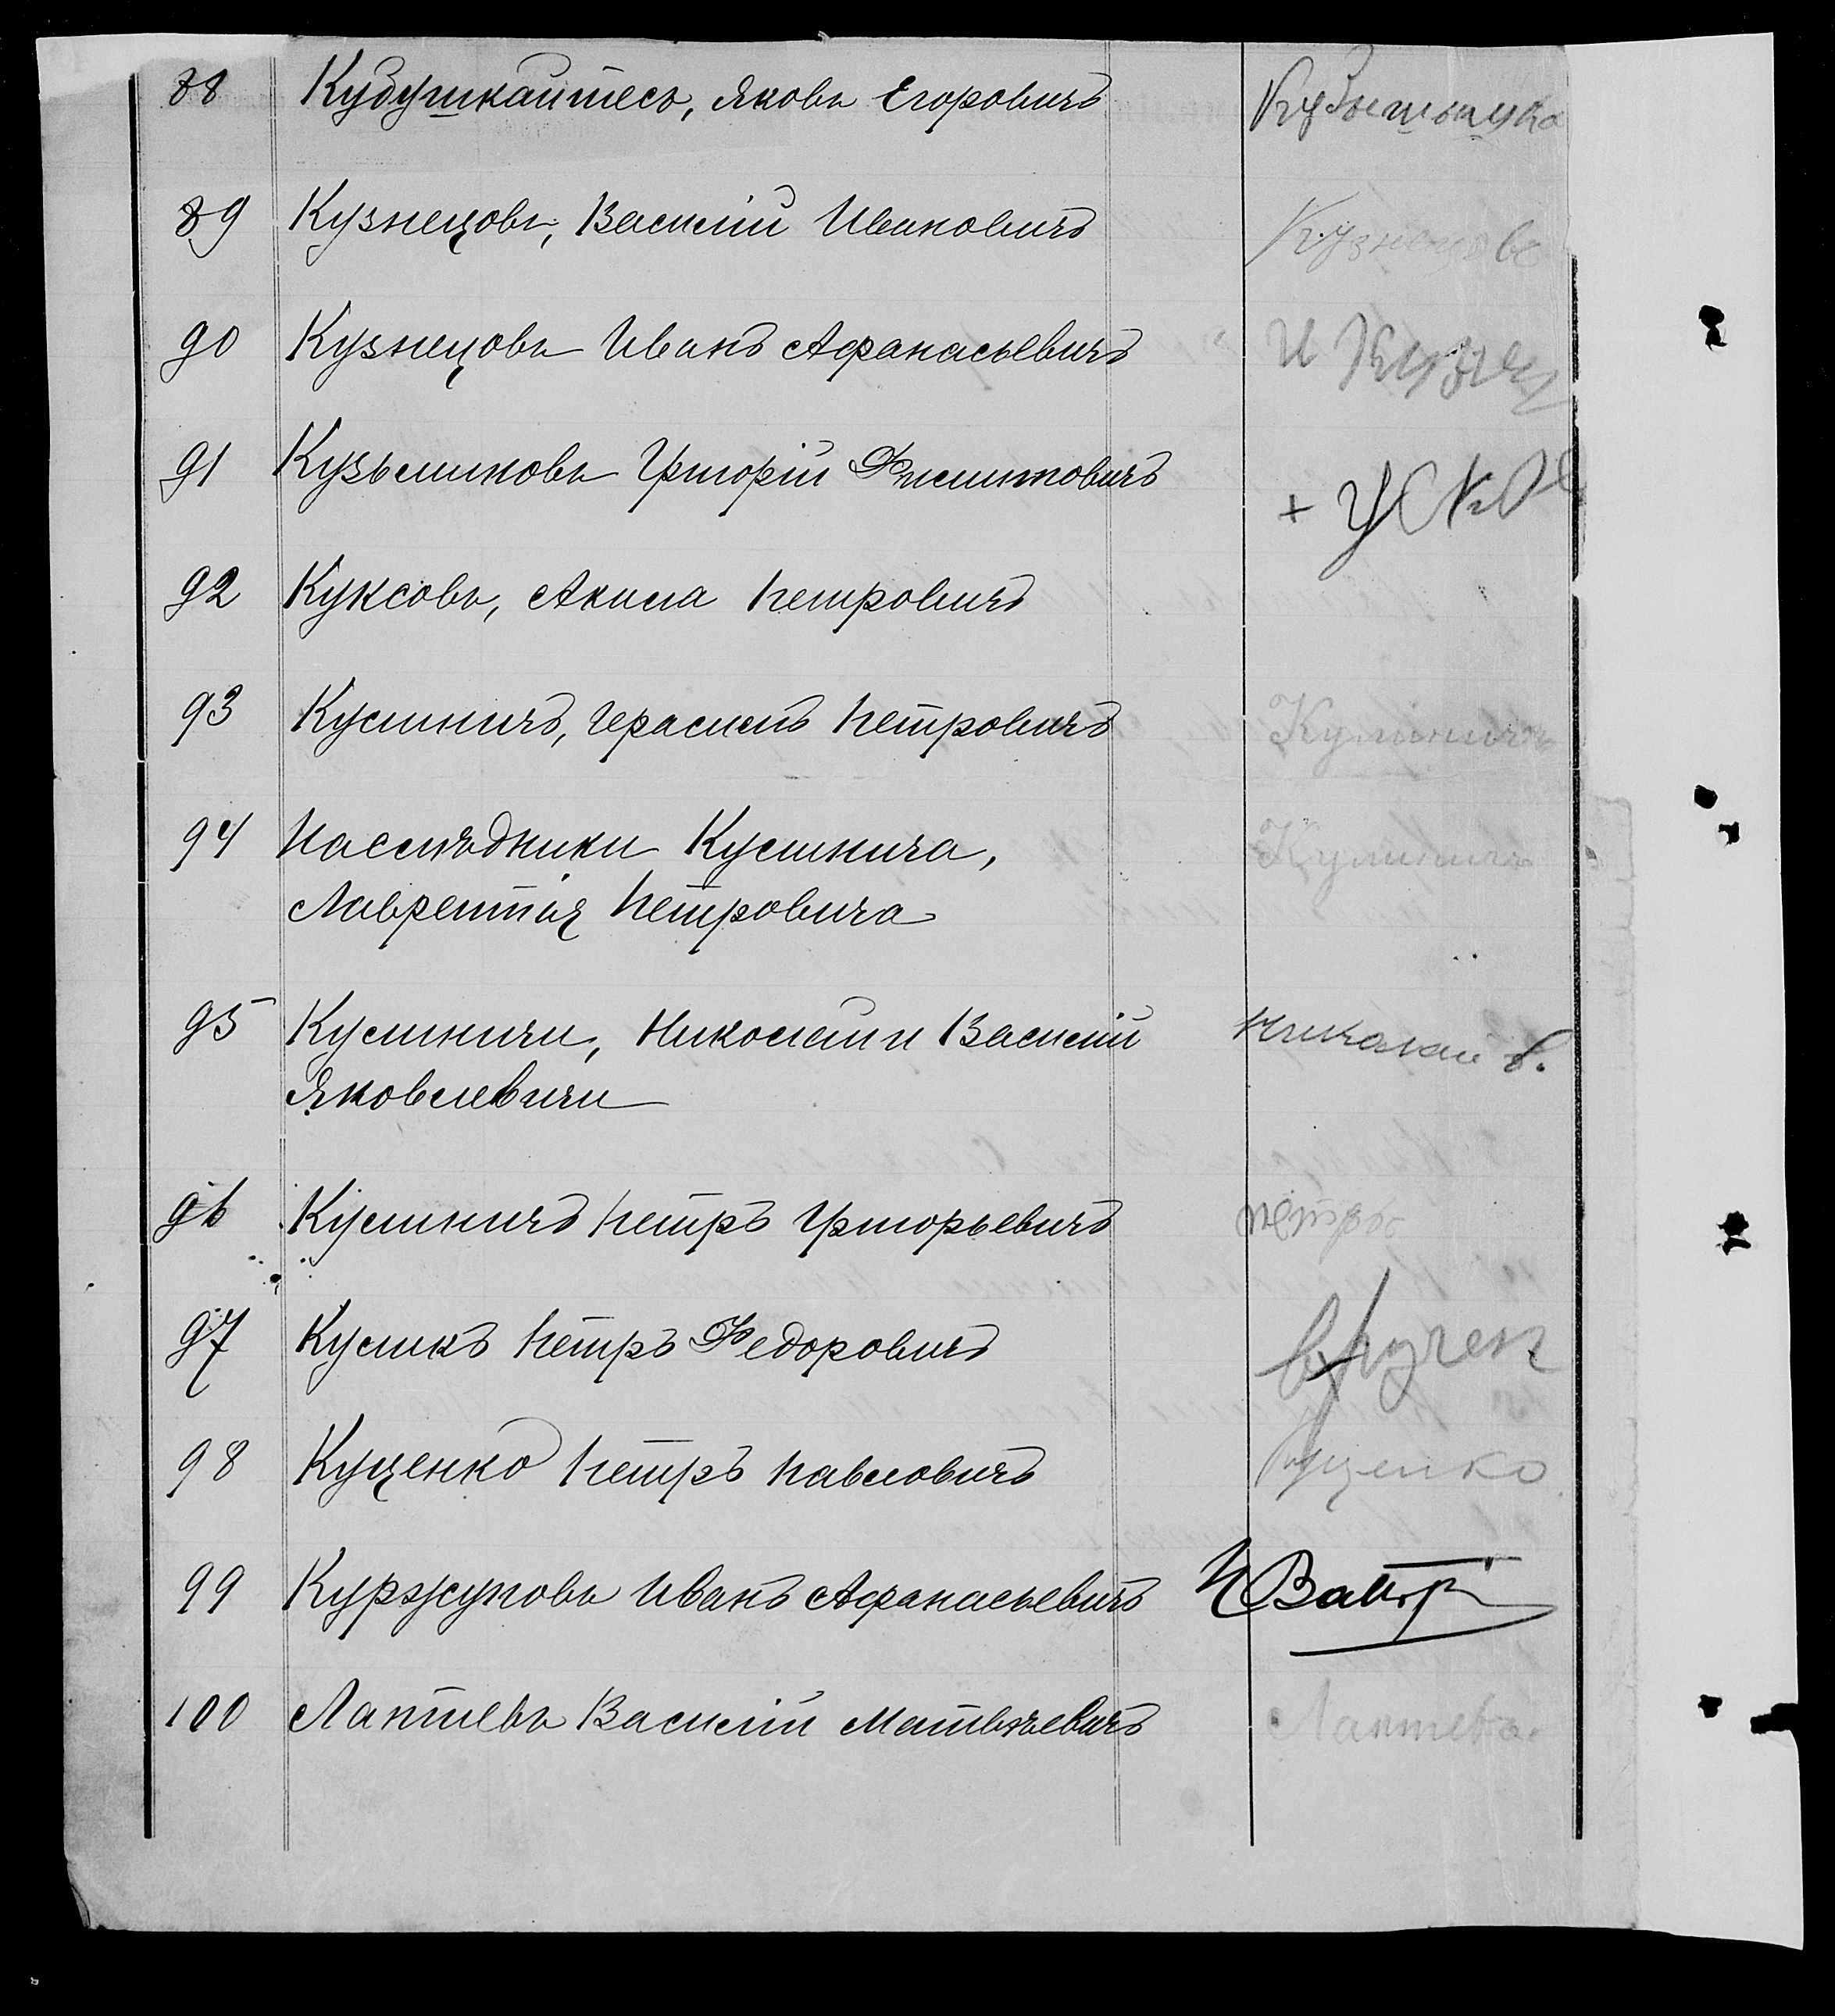 88 Кубушкайтесъ, Яковъ Егоровичъ
89 Кузнецовъ, Василій Ивановичъ Кузнецовъ
90 Кузнецовъ Иванъ Афанасьевичъ И Кузнец
91 Кузьминовъ Григорій Филипповичъ +
92 Куксовъ, Акимъ Петровичъ
93 Кулиничъ, Герасимъ Петровичъ Кулиничъ
94 Наслѣдники Кулинича, Кулиничъ
Лаврентія Петровича
95 Кулиничи, Николай и Василій Николай В.
Яковлевичи
96 Кулиничъ Петръ Григорьевичъ Петръ
97 Куликъ Петръ Федоровичъ вручен
98 Куценко Петръ Павловичъ Куценко
99 Куржуповъ Иванъ Афанасьевичъ
100 Лаптевъ Василій Матвѣевичъ Лаптевъ